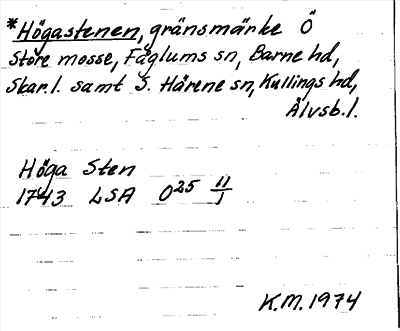 *Högastenen, gränsmärke Ö
Store mosse, Fåglums sn, Barne hd,
Skar.l. samt S. Härene sn, Kullings hd,
Älvsb.l.
Höga Sten
1743 LSA O25 11/1
K.M. 1974